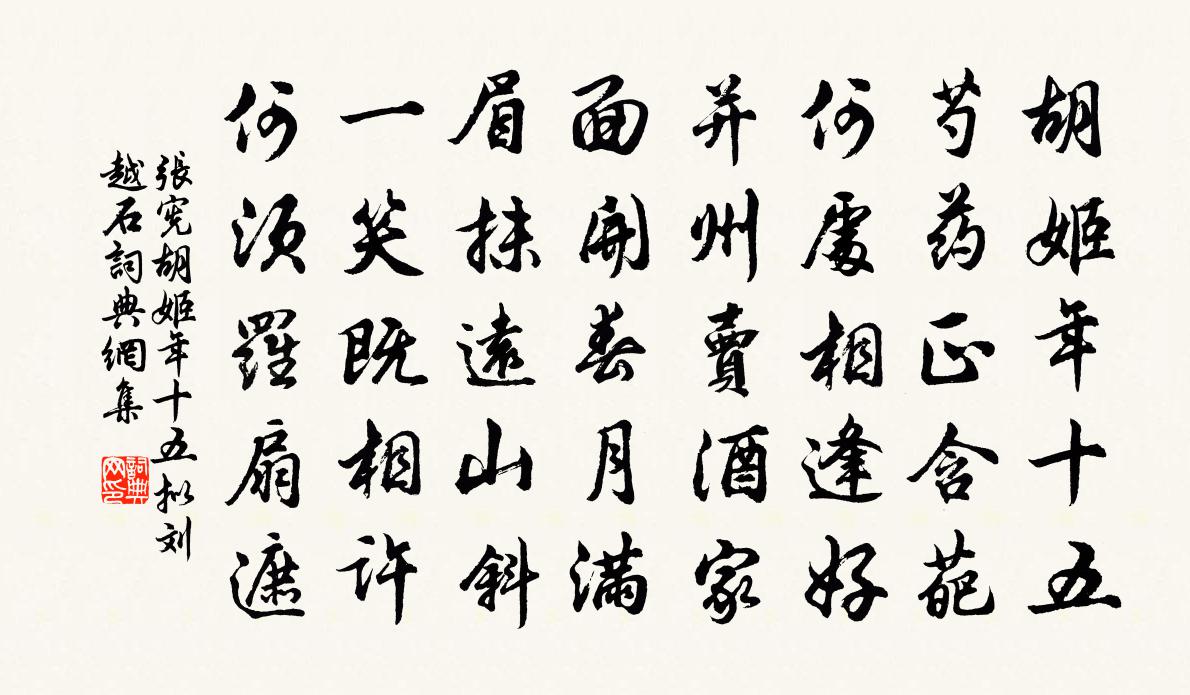 胡姬年十五
芍药正含葩
何處相逢好
并州賣酒家
面開春月滿
眉抹遠山斜
一笑既相許
何須羅扇遮
張憲胡姬年十五拟刘
越石詞典網集
詞典
网印